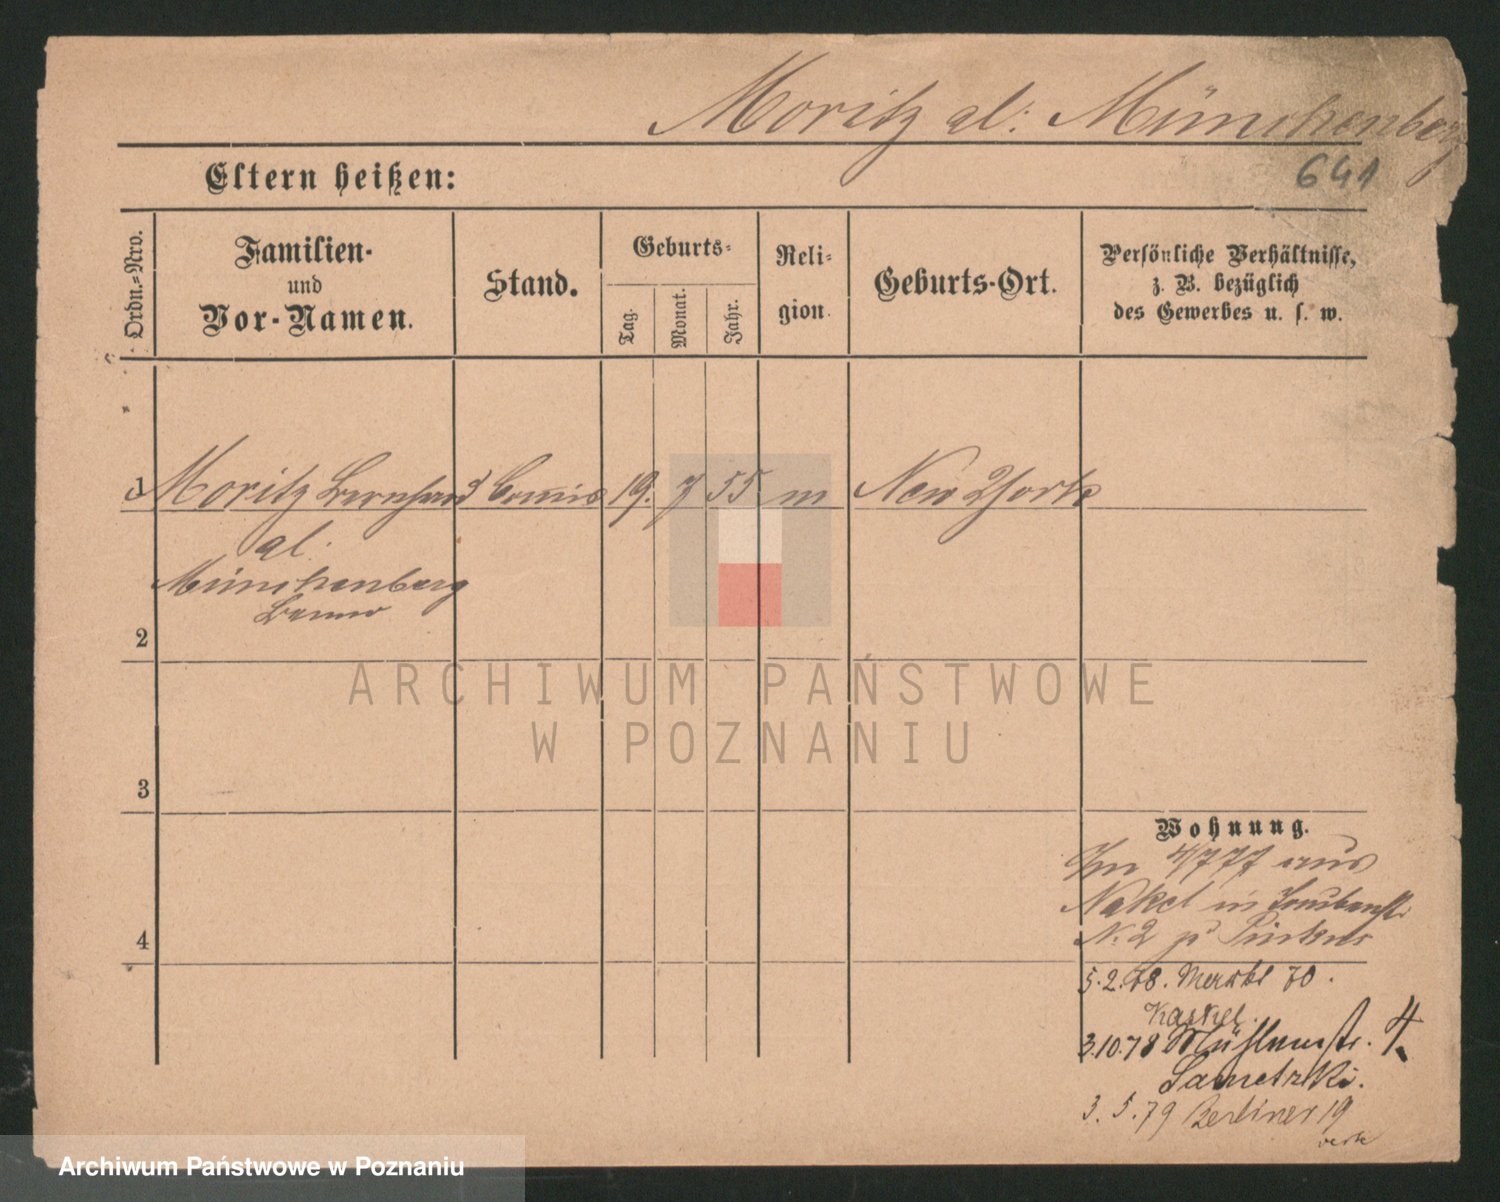 Moritz al: Münchenberg
641
Eltern heißen:
Ordn.=Nro.
Familien-
und
Vor-Namen.
Stand.
Geburts-
Tag.
Monat.
Jahr.
Reli-
gion.
Geburts-Ort.
Persönliche Verhältnisse,
z. B. bezüglich
des Gewerbes u. s. w.
1 Moritz Bernhard Commis 19. 7 55 m New York
al.
Münchenberg
Benno
2
3
4
Wohnung.
Im 4/77 aus
Nakel in
N. 2
5.2.78. Markt 70.
Kaskel.
3.10.78 Mühlenstr. 4
Sametzki.
3.5.79 Berliner 19
ARCHIWUM PAŃSTWOWE
W POZNANIU
Archiwum Państwowe w Poznaniu